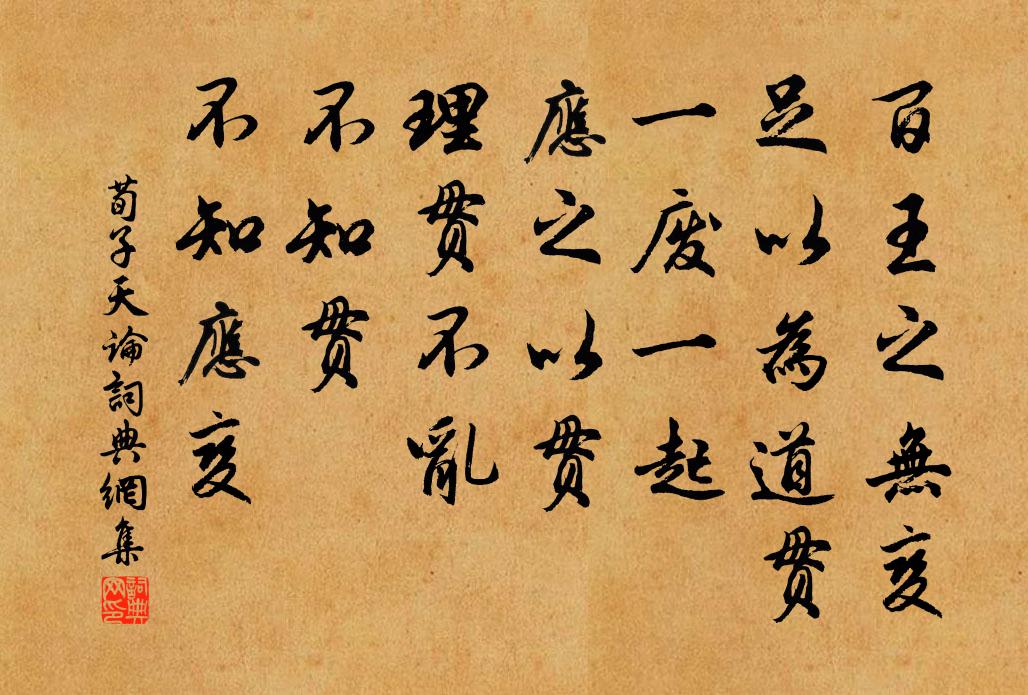 百王之無變
足以為道貫
一廢一起
應之以貫
理貫不亂
不知貫
不知應變
荀子天論詞典網集
詞典網印